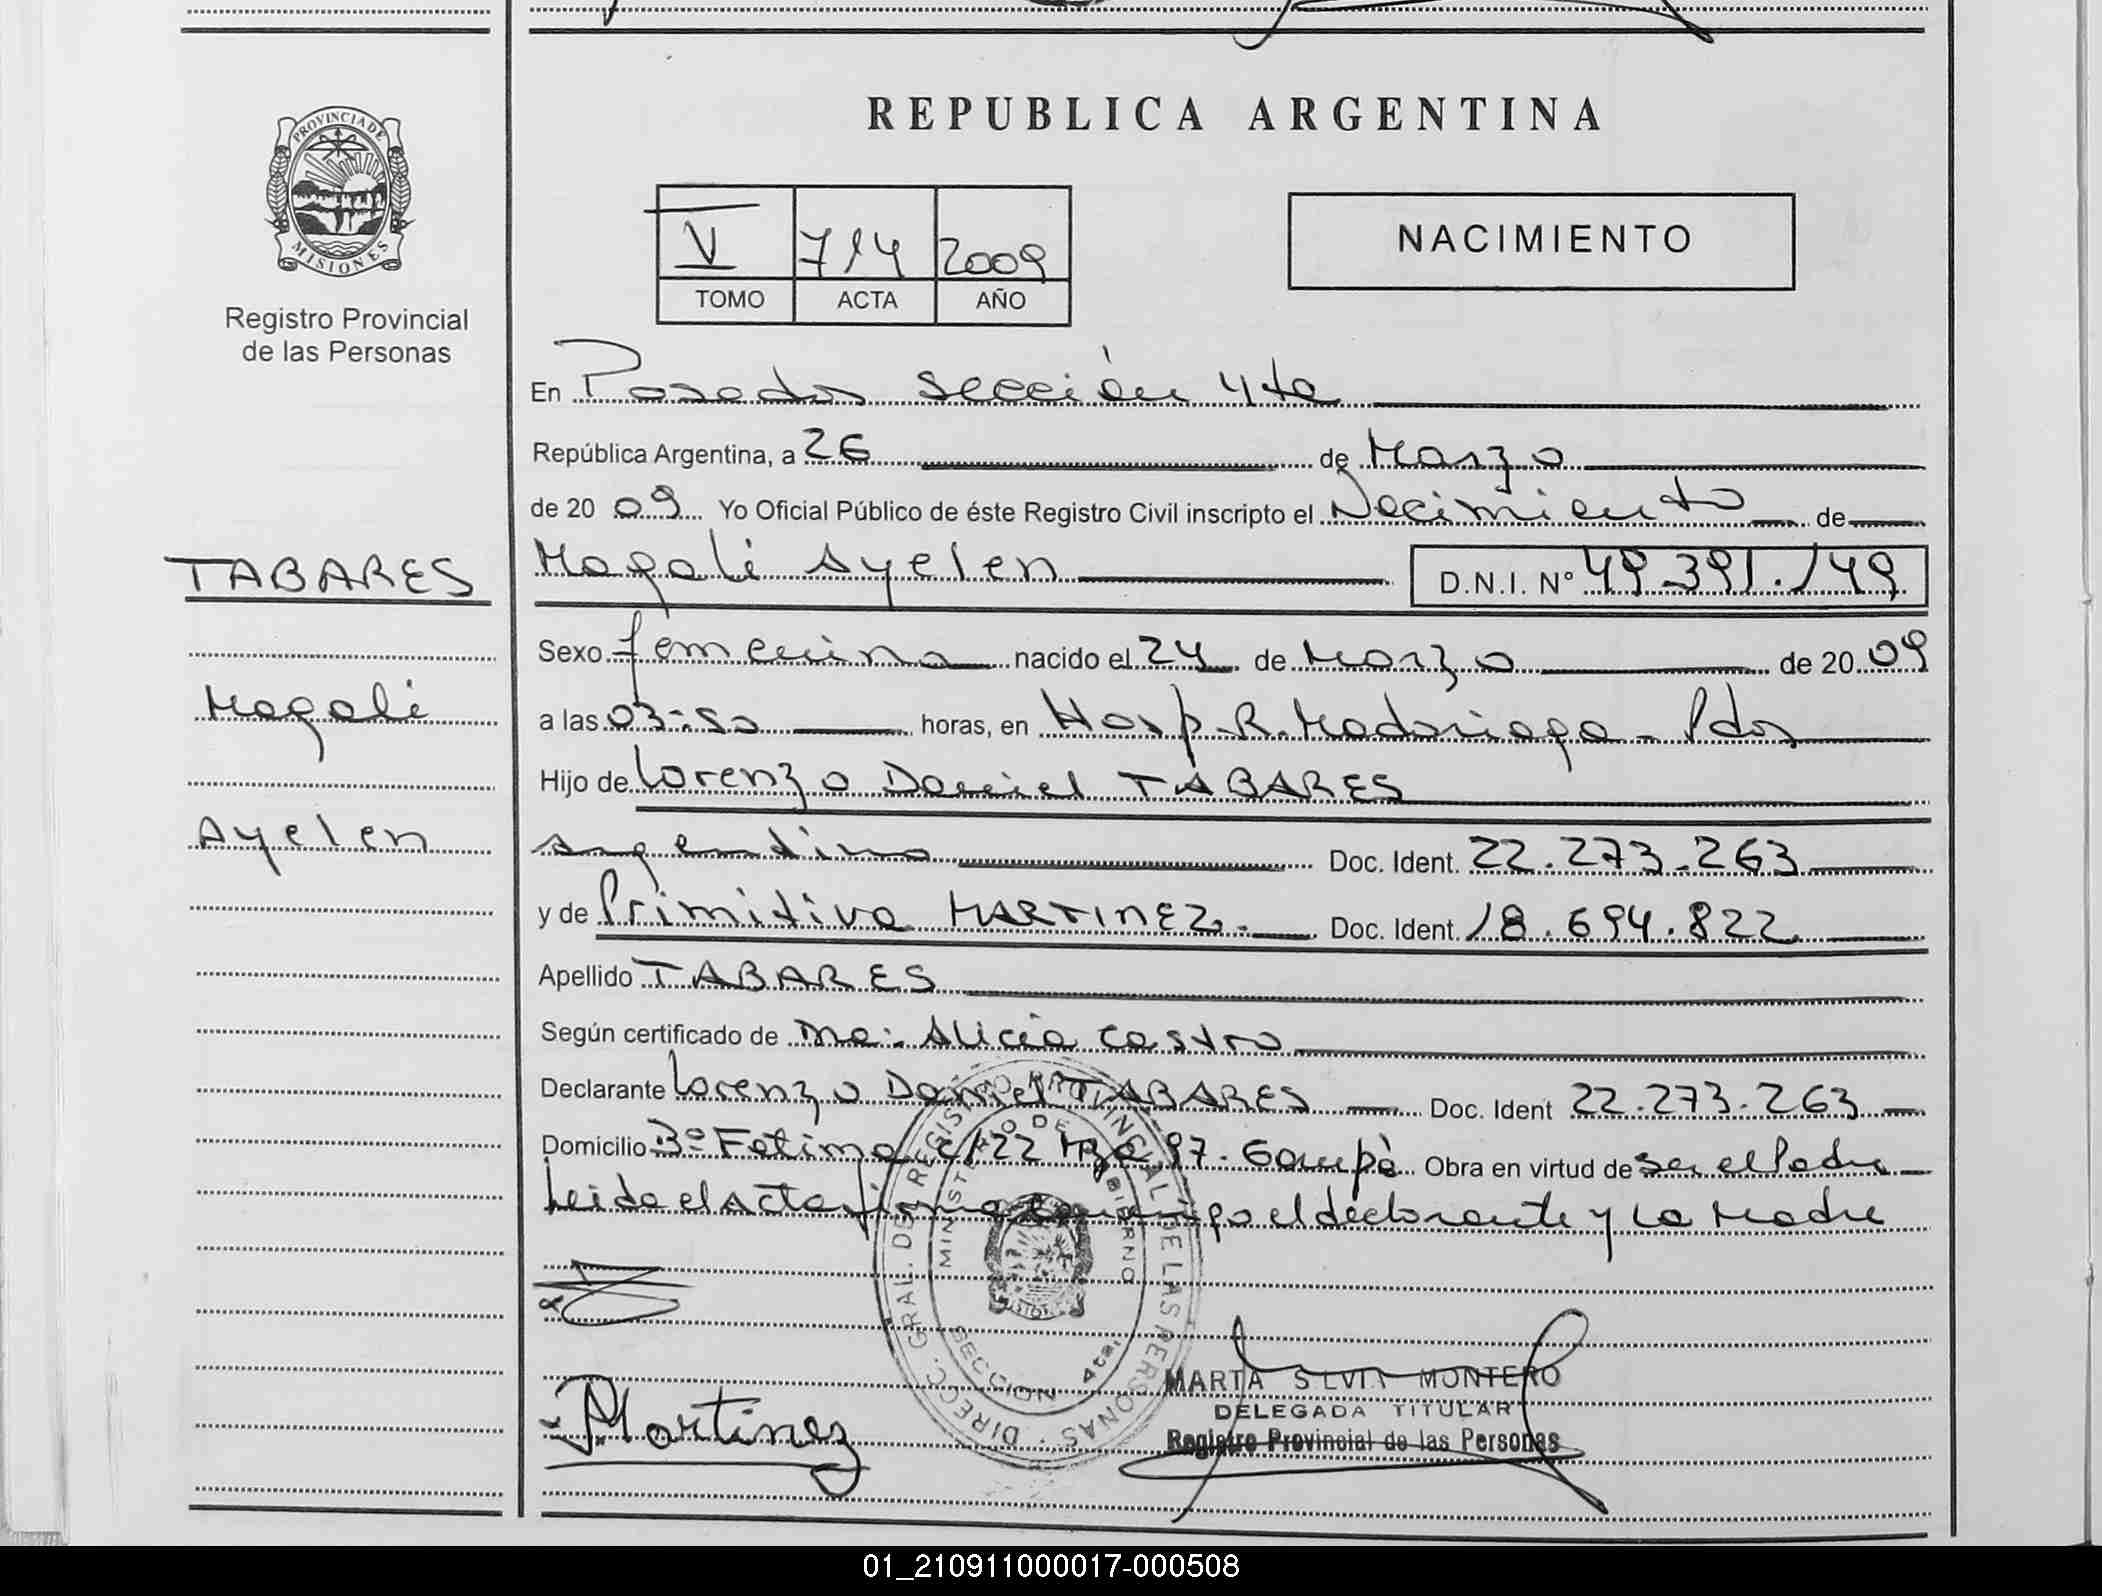 REPUBLICA ARGENTINA
PROVINCIA DE
MISIONES
Registro Provincial
de las Personas
V 714 2009
TOMO ACTA AÑO
NACIMIENTO
En Posadas Sección 4ta
República Argentina, a 26 de Marzo
de 20 09 Yo Oficial Público de éste Registro Civil inscripto el Nacimiento de
TABARES
Magali Ayelen D.N.I. Nº 49.391.149
Sexo femenino nacido el 24 de Marzo de 20 09
Magali
a las 03:50 horas, en Hosp. R. Madariaga - Pdas
Hijo de Lorenzo Daniel TABARES
Ayelen
argentino Doc. Ident. 22.273.263
y de Primitiva MARTINEZ. Doc. Ident. 18.694.822
Apellido TABARES
Según certificado de Alicia Castro
Declarante Lorenzo Daniel TABARES Doc. Ident 22.273.263
Domicilio Bº Fatima 97. Garupá Obra en virtud de ser el Padre
Leida el Acta firma conmigo el declarante y La Madre
DIRECC. GRAL. DEL REGISTRO PROVINCIAL DE LAS PERSONAS
MINISTERIO DE GOBIERNO
MISIONES
SECCION 4ta.
PMartinez
MARTA SILVIA MONTERO
DELEGADA TITULAR
Registro Provincial de las Personas
01_210911000017-000508